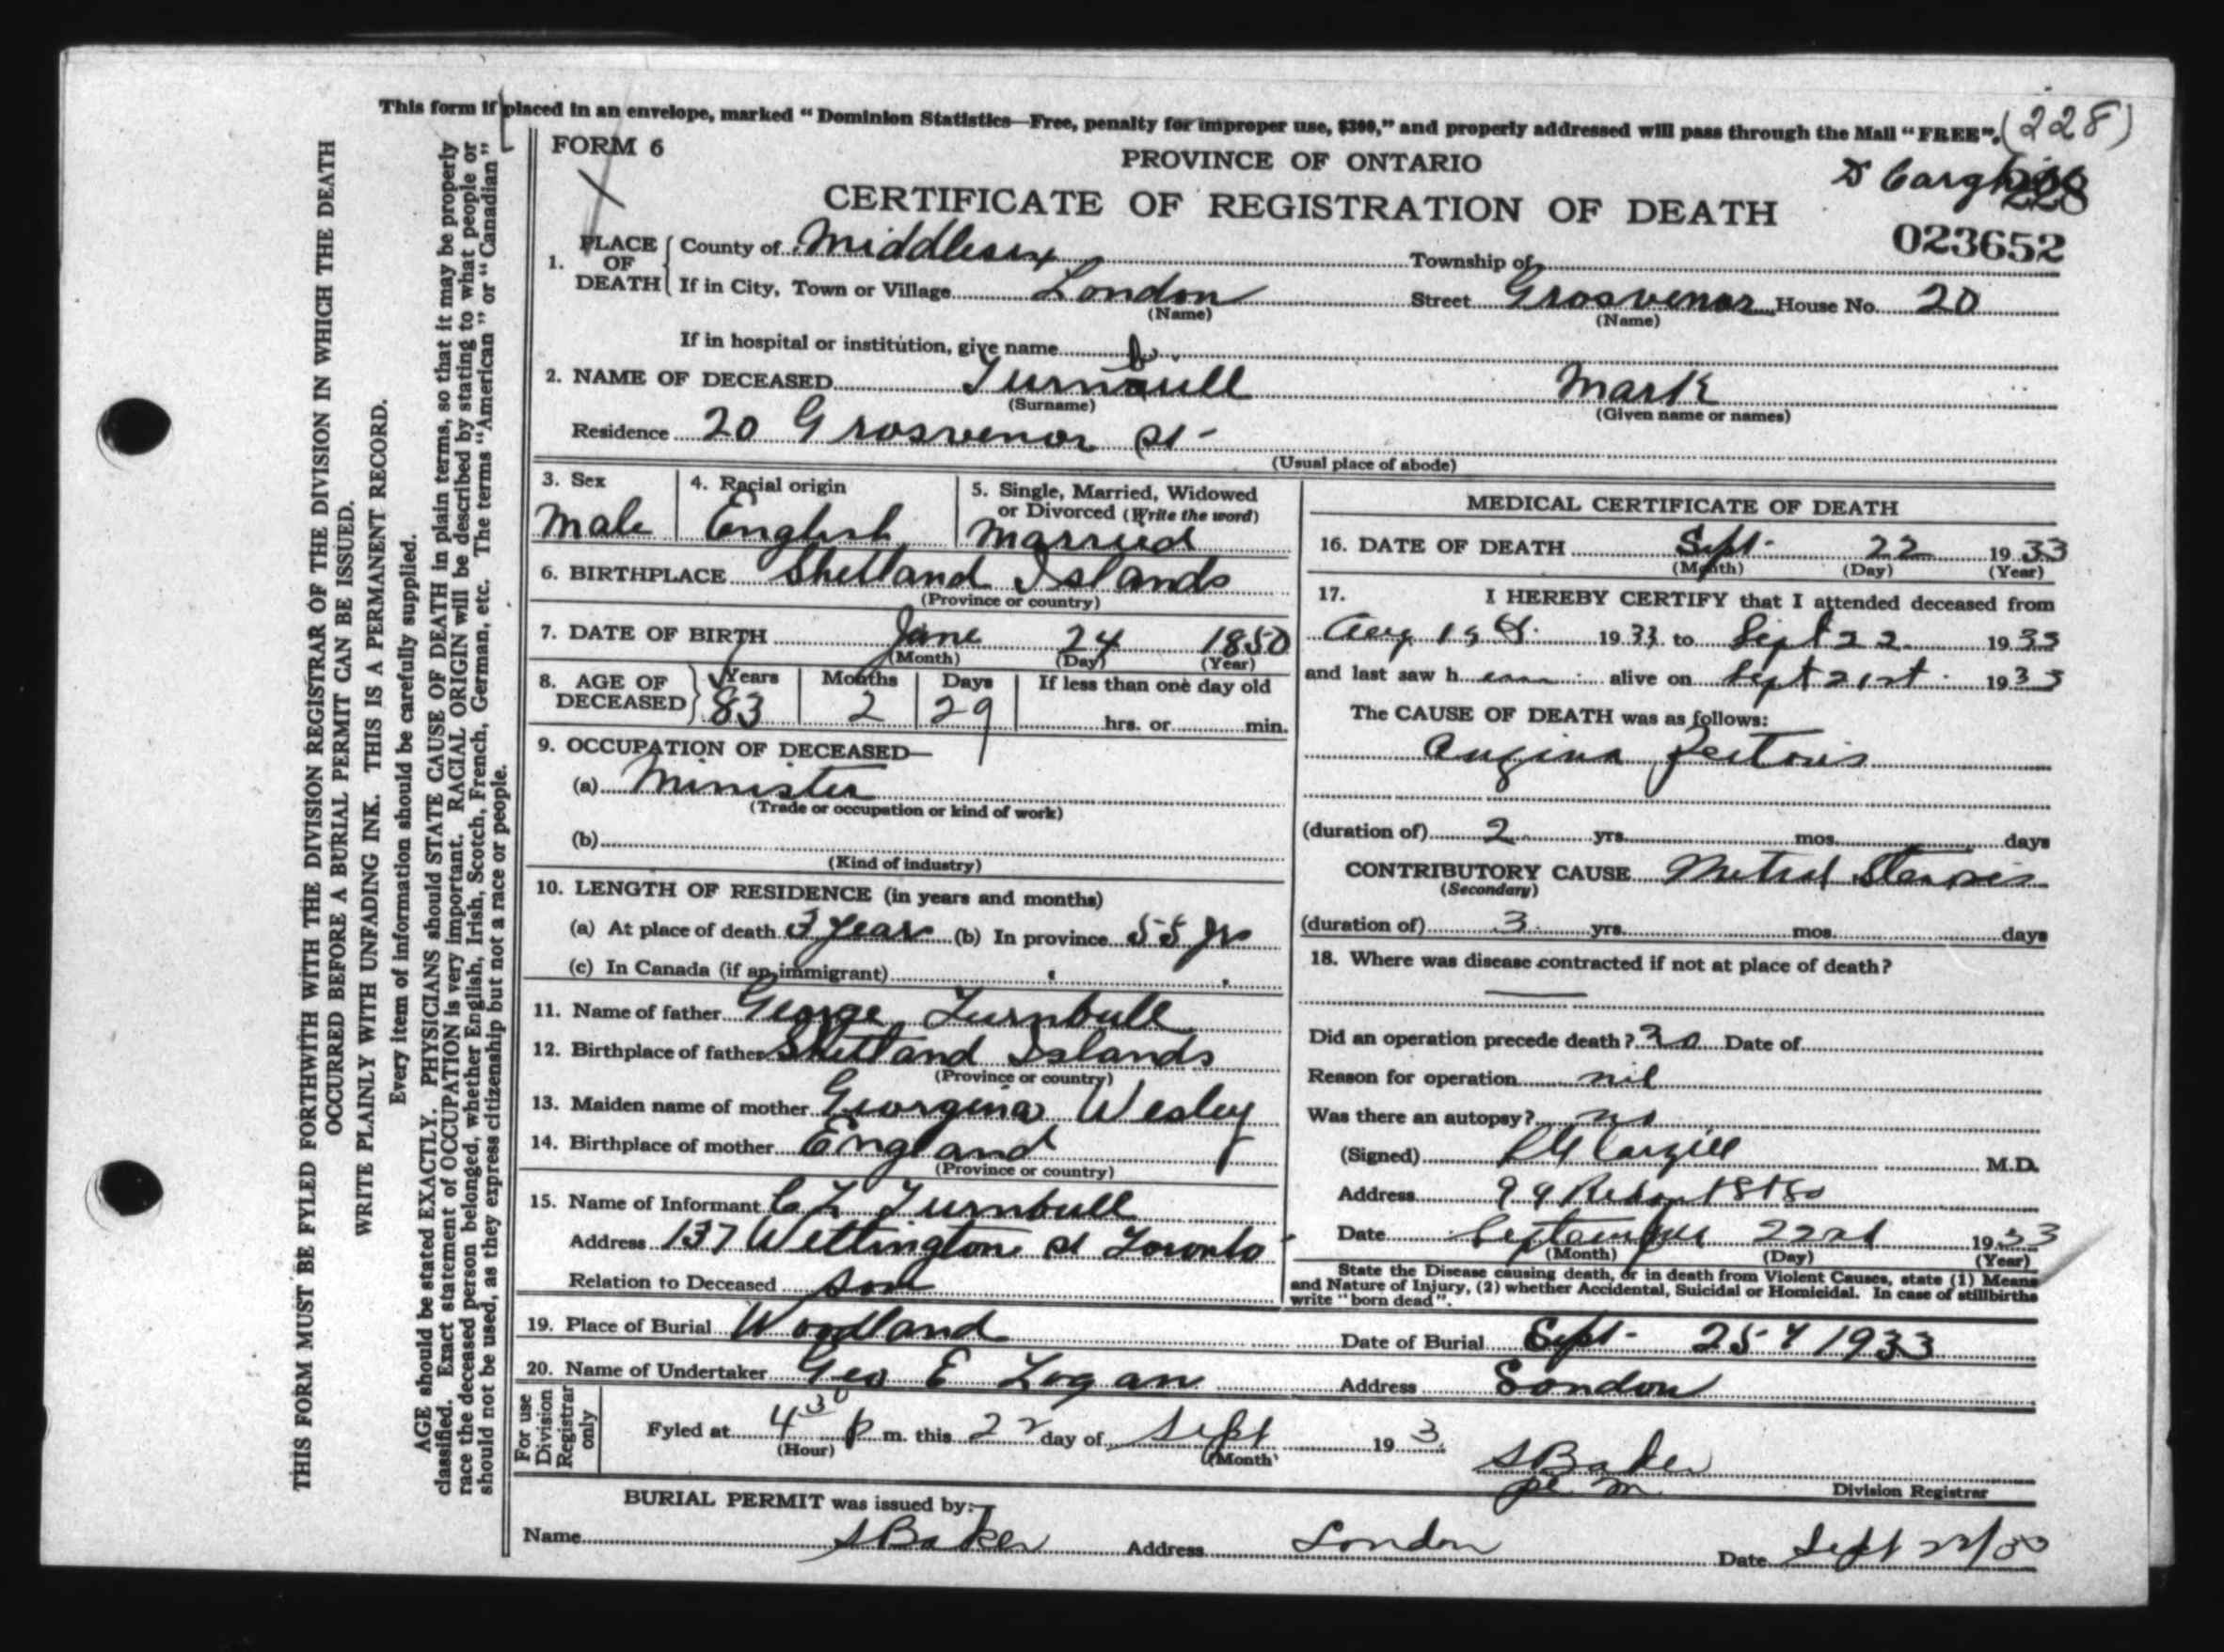 This form if placed in an envelope, marked “Dominion Statistics—Free, penalty for improper use, $300,” and properly addressed will pass through the Mail “FREE”. (228)
FORM 6
PROVINCE OF ONTARIO
CERTIFICATE OF REGISTRATION OF DEATH
023652
1. PLACE OF DEATH County of Middlesex Township of
If in City, Town or Village London Street Grosvenor House No. 20
(Name) (Name)
If in hospital or institution, give name
2. NAME OF DECEASED Turnbull Mark
(Surname) (Given name or names)
Residence 20 Grosvenor st -
(Usual place of abode)
3. Sex Male
4. Racial origin English
5. Single, Married, Widowed or Divorced (Write the word) Married
6. BIRTHPLACE Shetland Islands
(Province or country)
7. DATE OF BIRTH June 24 1850
(Month) (Day) (Year)
8. AGE OF DECEASED Years 83 Months 2 Days 29 If less than one day old
hrs. or min.
9. OCCUPATION OF DECEASED—
(a) Minister
(Trade or occupation or kind of work)
(b)
(Kind of industry)
10. LENGTH OF RESIDENCE (in years and months)
(a) At place of death 3 Years (b) In province 55 yrs
(c) In Canada (if an immigrant)
11. Name of father George Turnbull
12. Birthplace of father Shetland Islands
(Province or country)
13. Maiden name of mother Georgina Wesley
14. Birthplace of mother England
(Province or country)
15. Name of Informant Turnbull
Address 137 Wellington st Toronto
Relation to Deceased son
MEDICAL CERTIFICATE OF DEATH
16. DATE OF DEATH Sept - 22 1933
(Month) (Day) (Year)
17. I HEREBY CERTIFY that I attended deceased from
Aug 1st 1933 to Sept 22 1933
and last saw h alive on Sept 21st 1933
The CAUSE OF DEATH was as follows:
Angina Pectoris
(duration of) 2 yrs. mos. days
CONTRIBUTORY CAUSE Mitral Stenosis
(Secondary)
(duration of) 3 yrs. mos. days
18. Where was disease contracted if not at place of death?
Did an operation precede death? no Date of
Reason for operation nil
Was there an autopsy? no
(Signed) Cargill M.D.
Address 99
Date September 22nd 1933
(Month) (Day) (Year)
State the Disease causing death, or in death from Violent Causes, state (1) Means
and Nature of Injury, (2) whether Accidental, Suicidal or Homicidal. In case of stillbirths
write “born dead”.
19. Place of Burial Woodland Date of Burial Sept - 25 1933
20. Name of Undertaker Geo E Logan Address London
For use Division Registrar only
Fyled at 4 30 p m. this 22 day of Sept 19 3
(Hour) (Month)
S Baker
Division Registrar
BURIAL PERMIT was issued by:—
Name S Baker Address London Date Sept 22/33
THIS FORM MUST BE FYLED FORTHWITH WITH THE DIVISION REGISTRAR OF THE DIVISION IN WHICH THE DEATH
OCCURRED BEFORE A BURIAL PERMIT CAN BE ISSUED.
WRITE PLAINLY WITH UNFADING INK. THIS IS A PERMANENT RECORD.
Every item of information should be carefully supplied.
AGE should be stated EXACTLY. PHYSICIANS should STATE CAUSE OF DEATH in plain terms, so that it may be properly
classified. Exact statement of OCCUPATION is very important. RACIAL ORIGIN will be described by stating to what people or
race the deceased person belonged, whether English, Irish, Scotch, French, German, etc. The terms “American” or “Canadian”
should not be used, as they express citizenship but not a race or people.